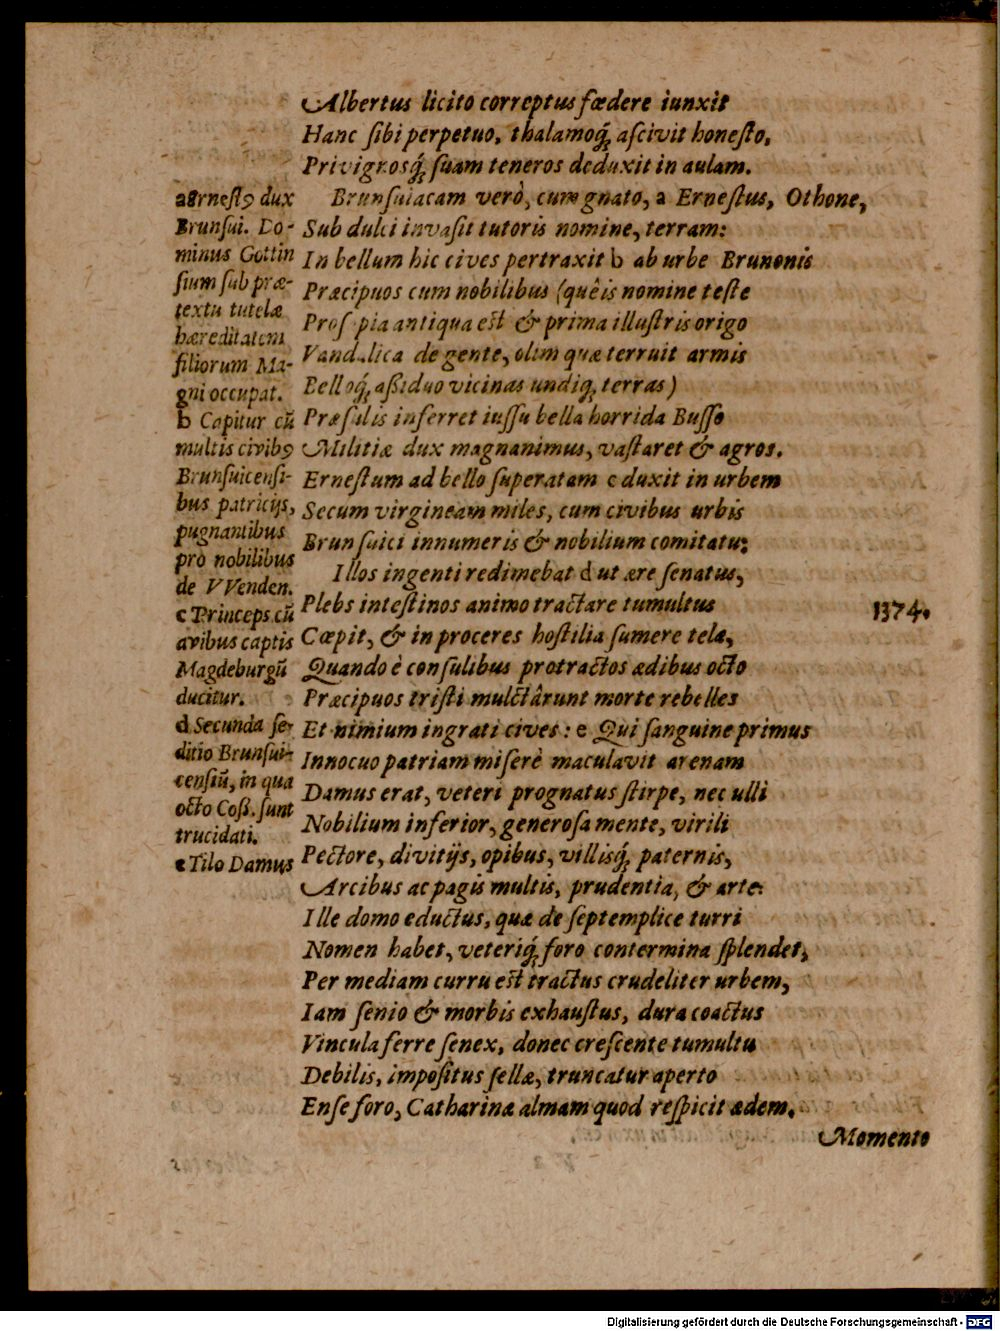 Albertus licito correptus fœdere iunxit
Hanc ſibi perpetuo, thalamoq́; aſcivit honeſto,
Privignosq́; ſuam teneros deduxit in aulam.
Brunſuiacam verò, cum gnato, a Erneſtus, Othone,
Sub dulci invaſit tutoris nomine, terram:
In bellum hic cives pertraxit b ab urbe Brunonis
Præcipuos cum nobilibus (quêis nomine teſte
Proſapia antiqua eſt & prima illuſtris origo
Vandalica de gente, olim quæ terruit armis
Belloq́; aßiduo vicinas undiq; terras)
Præſulis inferret iuſſu bella horrida Buſſo
Militiæ dux magnanimus, vaſtaret & agros.
Erneſtum ad bello ſuperatam c duxit in urbem
Secum virgineam miles, cum civibus urbis
Brunſuici innumeris & nobilium comitatu;
Illos ingenti redimebat d ut ære ſenatus,
Plebs inteſtinos animo tractare tumultus
Cœpit, & in proceres hoſtilia ſumere tela,
Quando è conſulibus protractos ædibus octo
Præcipuos triſti mulctârunt morte rebelles
Et nimium ingrati cives: e Qui ſanguine primus
Innocuo patriam miſerè maculavit arenam
Damus erat, veteri prognatus ſtirpe, nec ulli
Nobilium inferior, generoſa mente, virili
Pectore, divitijs, opibus, villisq́; paternis,
Arcibus ac pagis multis, prudentia, & arte:
Ille domo eductus, quæ de ſeptemplice turri
Nomen habet, veteriq́; foro contermina ſplendet,
Per mediam curru eſt tractus crudeliter urbem,
Iam ſenio & morbis exhauſtus, dura coactus
Vincula ferre ſenex, donec creſcente tumultu
Debilis, impoſitus ſellæ, truncatur aperto
Enſe foro, Catharinæ almam quod reſpicit ædem.
Momento
a Erneſtꝰ dux
Brunſui. Do-
minus Gottin
ſium ſub præ-
textu tutelæ
hæreditatem
filiorum Ma-
gni occupat.
b Capitur cũ
multis civibꝰ
Brunſuicenſi-
bus patricijs,
pugnantibus
prò nobilibus
de VVenden.
c Princeps cũ
avibus captis
Magdeburgũ
ducitur.
d Secunda ſe-
ditio Brunſui-
cenſiũ, in qua
octo Coß. ſunt
trucidati.
e Tilo Damus
1374.
Digitalisierung gefördert durch die Deutsche Forschungsgemeinschaft - DFG